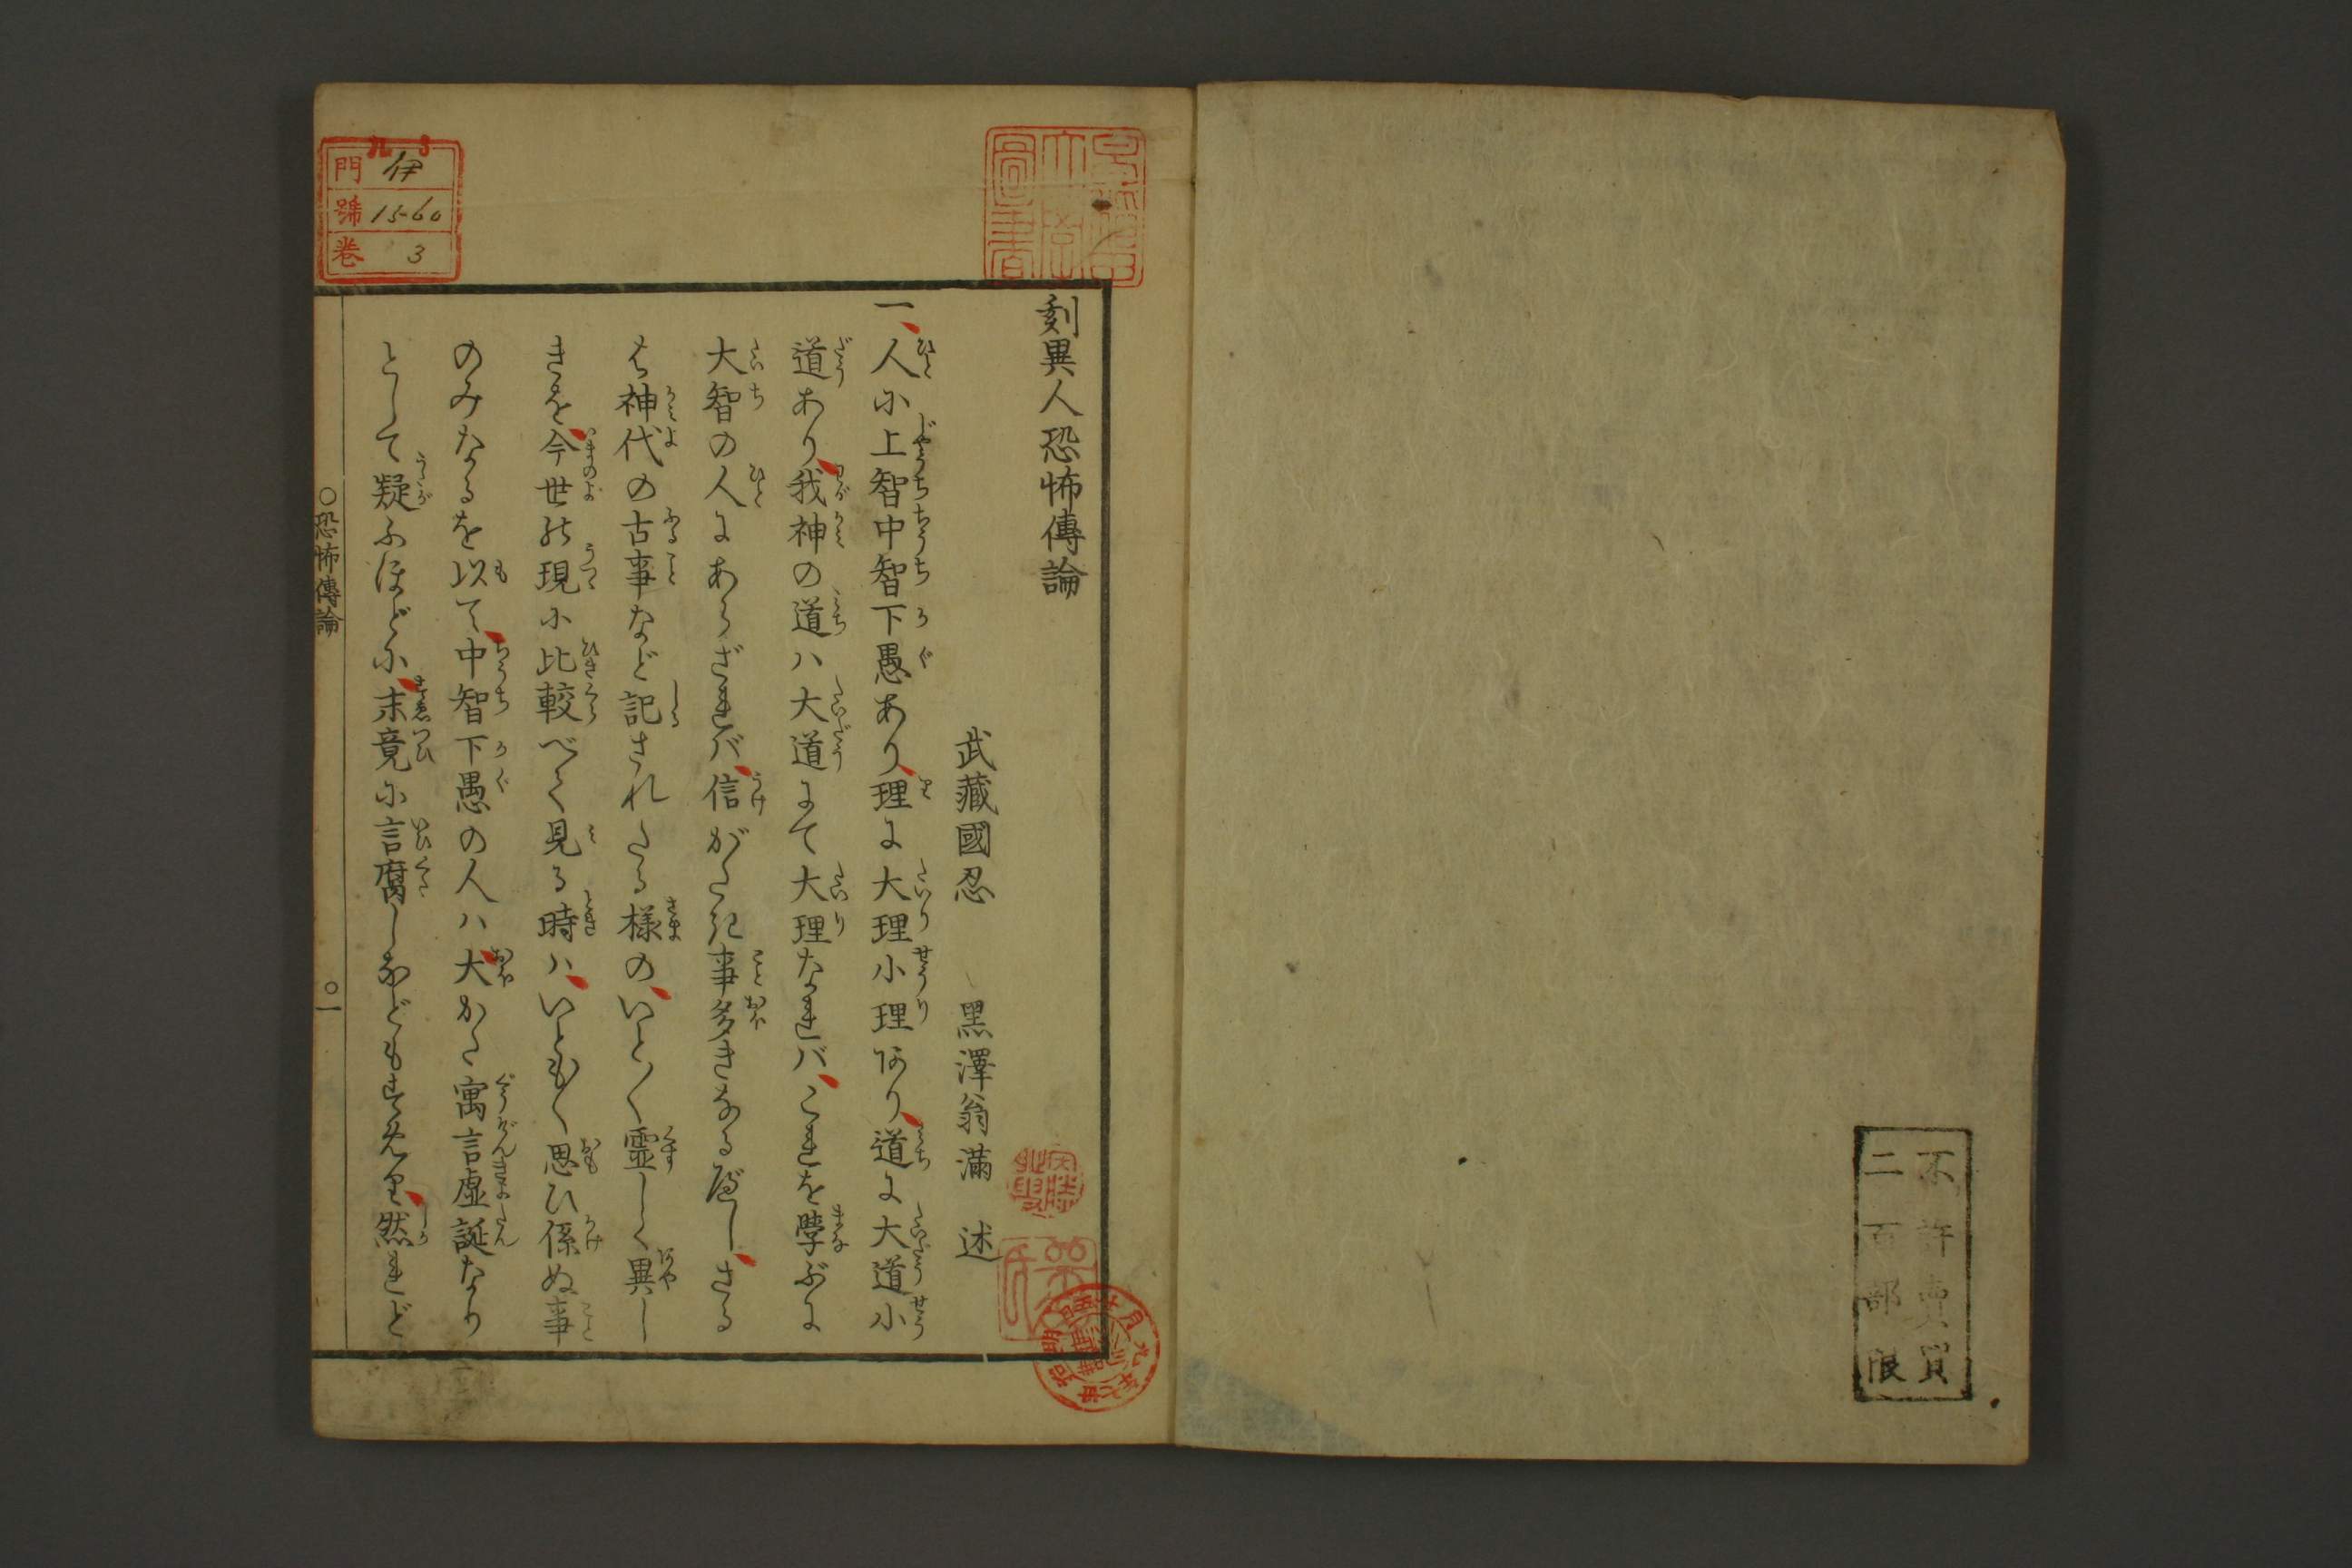 不許賣買
二百部限
刻異人恐怖傳論
武藏國忍 黑澤翁滿 述
一、人に上智中智下愚あり、理に大理小理あり、道に大道小
道あり、我神の道ハ大道にて大理なれバ、これを學ぶに
大智の人にあらざれバ、信がたき事多きなるべし、さる
は神代の古事など記されたる様の、いと〳〵霊しく異し
きを、今世の現に比較べて見る時ハ、いとも〳〵思ひ係ぬ事
のみなるを以て、中智下愚の人ハ、大かた寓言虚誕なり
として疑ふほどに、末竟に言腐しなどもすめり、然れど
○恐怖傳論
○一
門 伊
號 15-60
卷 3